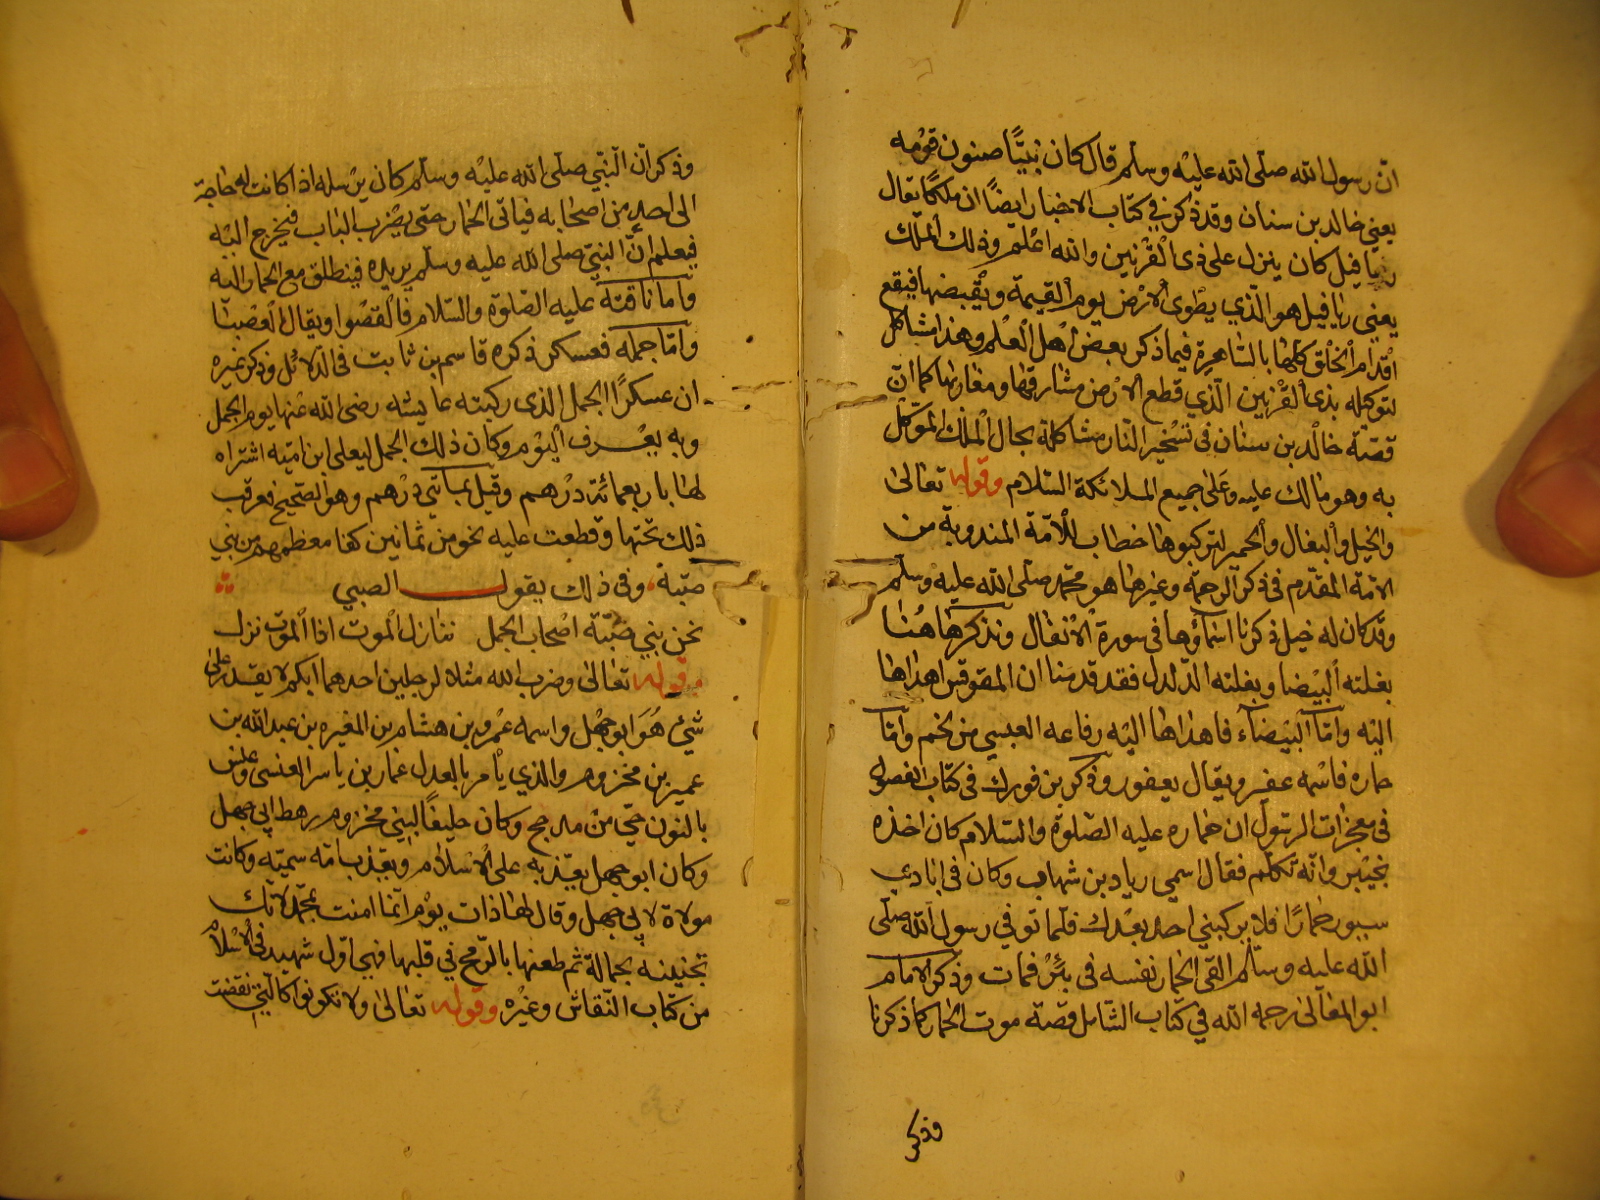 انّ رسول الله صلّى الله عليْه وسلّم قال كان نبيًّا صنون قوْمه
يعني خالد بن سنان وقد ذكر في كتاب الاخبار ايضًا ان ملكًا يقال
ريافيل كان ينزل على ذى الْقرْنين والله اعْلم وذلك الْملك
يعنى ريافيل هو الّذي يطْوى الارْض يوم الْقيمة ويقْبضها فيقع
اقْدام الْخلْق كلّها بالسّاهرة فيما ذكر بعض اهْل الْعلْم وهذا مشاكل
لتوكّله بذى الْقرْنين الّذي قطع الارْض مشارقها ومغاربها كما انّ
قصّة خالد بن سنان فى تسْخير النّار مشاكلة بحال الْملك الموكّل
به وهو مالك عليه وعلى جميع الملائكة السّلام وقوله تعالىٰ
والخيل والبغال والحمير لتركبوها خطاب للأمّة المندوبة من
الامّة المقدّم فى ذكر الرحمة وغيرها هو محمّد صلّى الله عليْه وسلّم
وقد كان له خيل ذكرنا اسْماؤها فى سورة الْانْفال ونذكرها هُنا
بغلته الْبيْضا وبغلته الدّلدل فقد قدمنا ان المقوقس اهداها
اليْه وامّا الْبيْضآء فاهداها اليْه رفاعه العبسي من لخم وامّا
حماره فاسْمه عفر ويقال يعفور وذكر بن فورك فى كتاب الفصول
فى معجزات الرسول ان حماره عليه الصّلوة والسّلام كان اخذه
بخيْبر وانّه تكلّم فقال اسمي رياد بن شهاب وكان فى ابادي
سبور حمارًا فلا يركبني احد بعْدك فلمّا توفي رسول الله صلّى
الله عليْه وسلّم القى الحمار نفسه فى بئْر فمات وذكر الامام
ابو المعالى رحمه الله في كتاب الشّامل قصّة موت الحمار كما ذكرنا
وذكر
وذكر انّ النّبيّ صلّى الله عليْه وسلّم كان يرْسله اذا كانت له حاجة
الى احد من اصْحابه فياتى الحمار حتى يضْرب الباب فيخرج اليْه
فيعلم انّ النبيّ صلى الله عليه وسلّم يريده فينطلق مع الحمار اليه
وامّا ناقته عليه الصّلوة والسّلام فالْقصْوا ويقال الْعضْبا
وامّا جمله فعسكر ذكره قاسم بن ثابت فى الدّلائل وذكر غيره
ان عسكرًا الجمل الذى ركبته عائيشه رضى الله عنْها يوم الجمل
وبه يعْرف اليْوم وكان ذلك الجمل ليعلى ابن اميّه اشتراه
لها باربعمائة درْهم وقيل بمايتي درْهم وهو الصّحيح فعرقب
ذلك تحْتها وقطعت عليه نحو من ثمانين كفا معظمهم من بني
ضبّة وفى ذلك يقول الضبي
نحن بني ضبّة اصْحاب الجمل ننازل الْموت اذا الْموت نزل
وقوله تعالىٰ وضرب الله مثلا رجلين احدهما ابكم لا يقدر على
شيْء هُوَ ابو جهْل واسمه عمْرو بن هشام بن المغيره بن عبد الله بن
عمير بن مخزوم والذي يأمر بالعدل عمّار بن ياسر العنسى وعنس
بالنون حيّ من مدحج وكان حليفًا لبني مخزوم رهط ابي جهل
وكان ابو جهل يعذّبه على الاسْلام ويعذّب امّه سميّه وكانت
مولاة لابي جهل وقال لها ذات يوْم انّما امنت بمحمّد لانّك
تحبّينه لجماله ثم طعنها بالرّمح في قلبها فهي اوّل شهيد فى الاسْلام
من كتاب النّقاش وغيْره وقوله تعالىٰ ولا تكونوا كالّتي نقضت